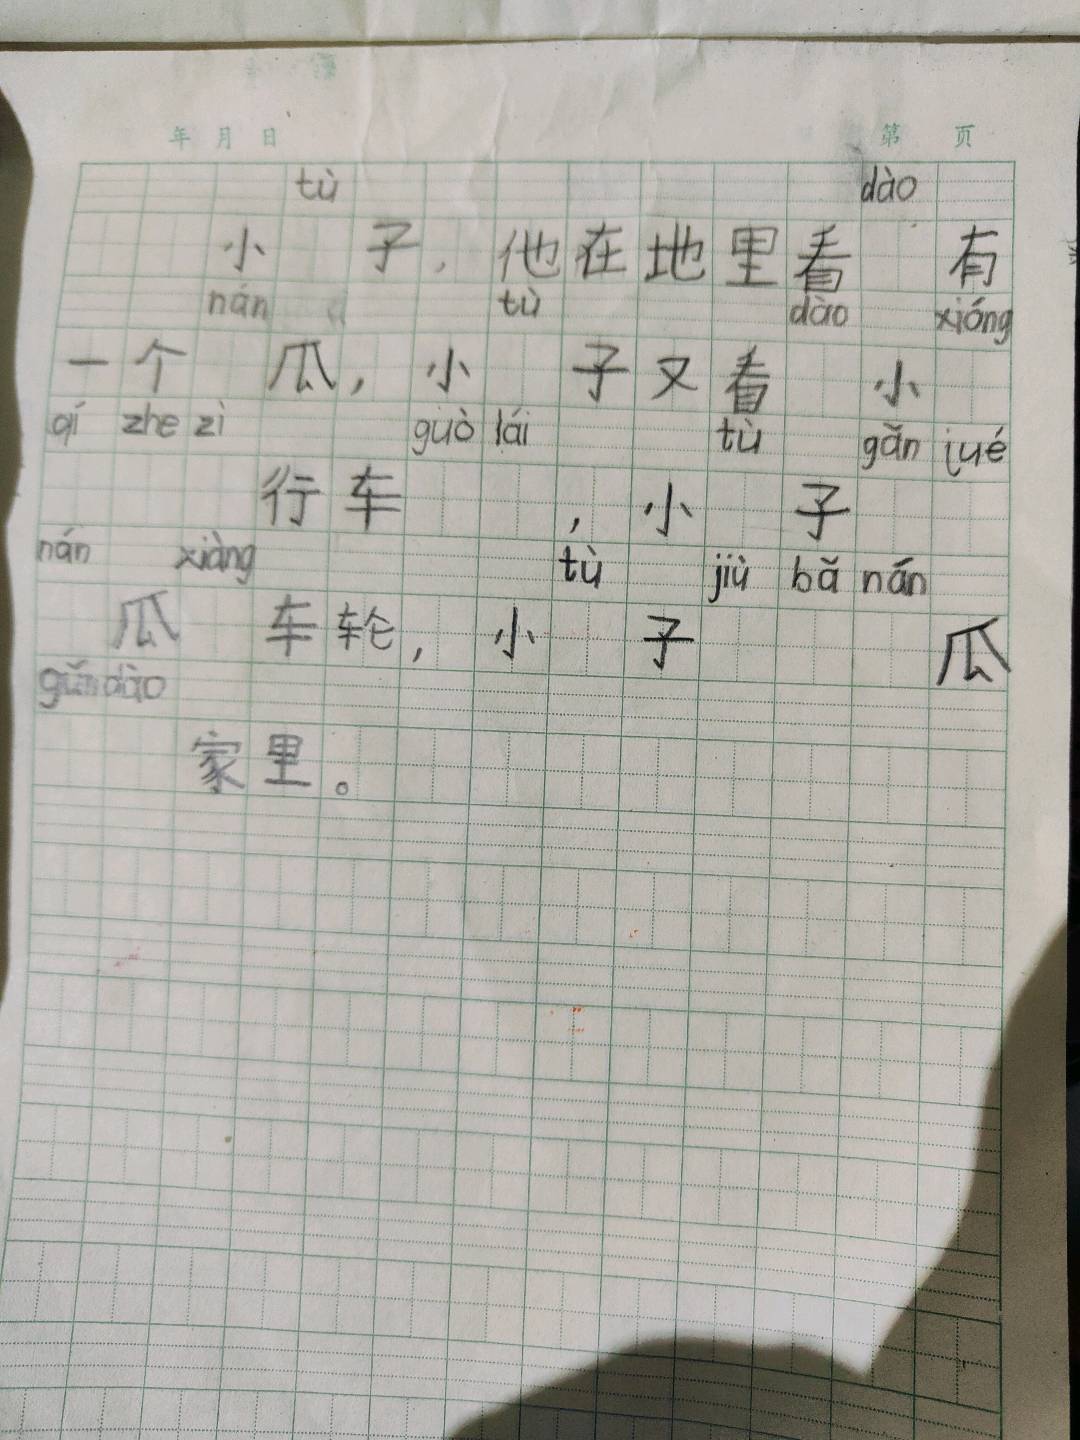 年 月 日 第 页
tù dào
小 子，他在地里看 有
nán tù dào xióng
一个 瓜，小 子又看 小
qí zhe zì guò lái tù gǎn jué
行车 ，小 子
nán xiàng tù jiù bǎ nán
瓜 车轮，小 子 瓜
gǔn dào
家里。